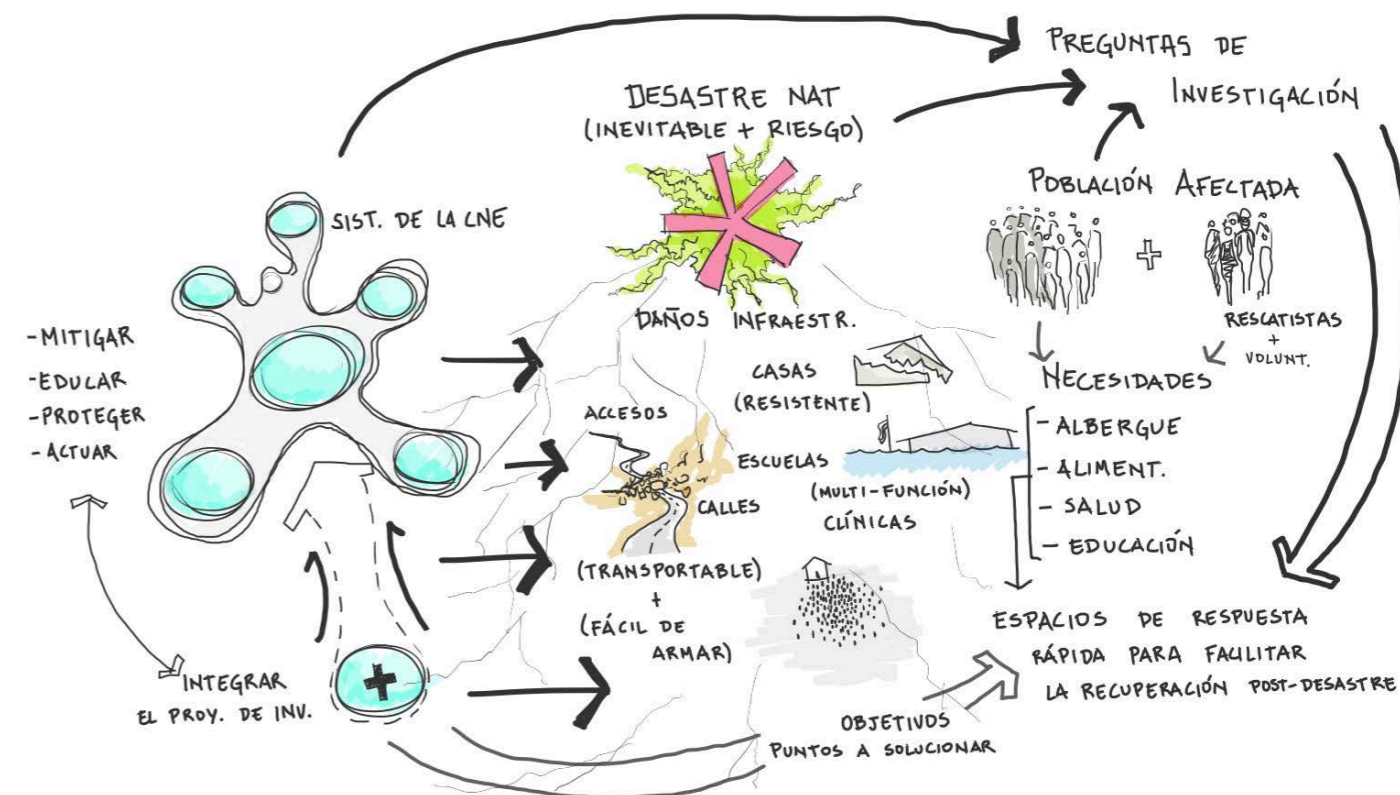 PREGUNTAS DE
INVESTIGACIÓN
DESASTRE NAT
(INEVITABLE + RIESGO)
POBLACIÓN AFECTADA
+
RESCATISTAS
+
VOLUNT.
SIST. DE LA CNE
-MITIGAR
-EDUCAR
-PROTEGER
-ACTUAR
DAÑOS INFRAESTR.
CASAS
(RESISTENTE)
ACCESOS
CALLES
ESCUELAS
(MULTI-FUNCIÓN)
CLÍNICAS
(TRANSPORTABLE)
+
(FÁCIL DE
ARMAR)
NECESIDADES
- ALBERGUE
- ALIMENT.
- SALUD
- EDUCACIÓN
ESPACIOS DE RESPUESTA
RÁPIDA PARA FACILITAR
LA RECUPERACIÓN POST-DESASTRE
INTEGRAR
EL PROY. DE INV.
+
OBJETIVOS
PUNTOS A SOLUCIONAR